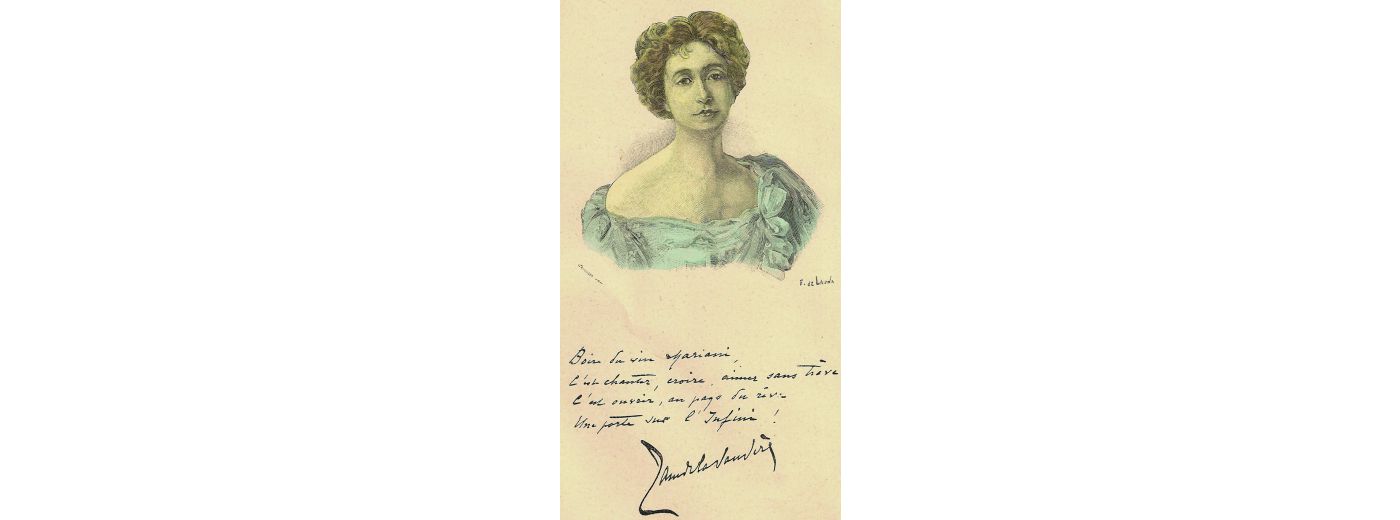 F. de Launda
Boire du vin Mariani,
C'est chanter, croire, aimer sans trève
C'est ouvrir, au pays du rêve
Une porte sur l'Infini !
Jane de la Vaudère